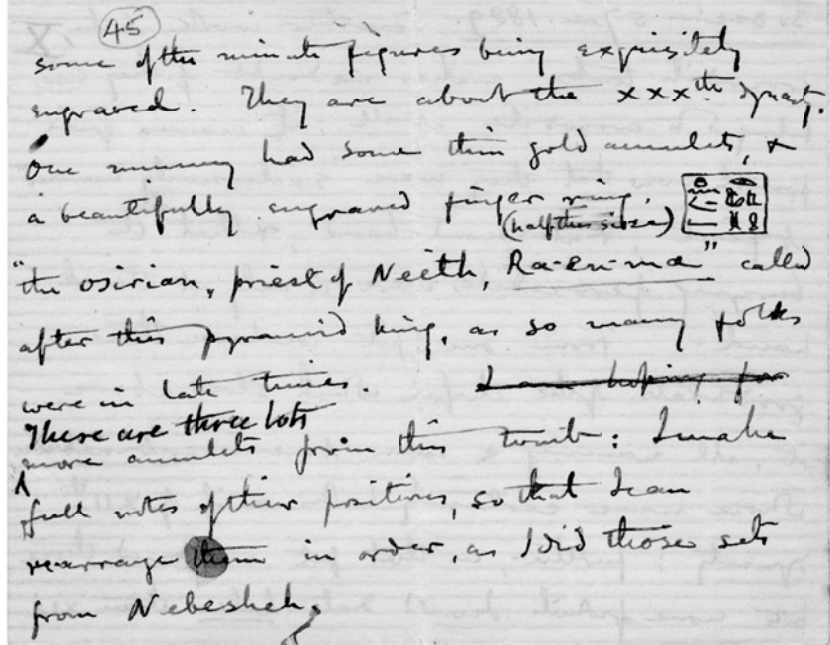 45
some of the minute figures being exquisitely
engraved. They are about the XXXth dynasty.
One mummy had some thin gold amulets, &
a beautifully engraved finger ring,
(half this size)
"the osirian, priest of Neith, Ra-en-ma" called
after this pyramid king, as so many folks
were in late times. I am hoping for
There are three lots
more amulets from this tomb: I make
full notes of their positions, so that I can
rearrange them in order, as I did those sets
from Nebesheh.